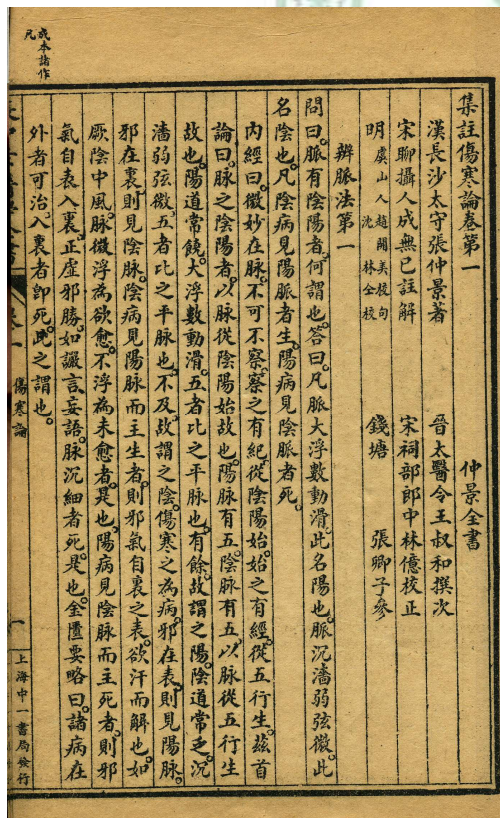 成本諸作
凡
集註傷寒論卷第一
仲景全書
漢長沙太守張仲景著
晉太醫令王叔和撰次
宋聊攝人成無已註解
宋祠部郎中林億校正
明
虞山人趙開美校句
沈 林 仝校
錢塘 張卿子參
辨脈法第一
問曰脈有陰陽者何謂也答曰凡脈大浮數動滑此名陽也脈沉濇弱弦微此
名陰也凡陰病見陽脈者生陽病見陰脈者死
內經曰微妙在脈不可不察察之有紀從陰陽始始之有經從五行生茲首
論曰脈之陰陽者以脈從陰陽始故也陽脈有五陰脈有五以脈從五行生
故也陽道常饒大浮數動滑五者比之平脈也有餘故謂之陽陰道常乏沉
濇弱弦微五者比之平脈也不及故謂之陰傷寒之為病邪在表則見陽脈
邪在裏則見陰脈陰病見陽脈而主生者則邪氣自裏之表欲汗而解也如
厥陰中風脈微浮為欲愈不浮為未愈者是也陽病見陰脈而主死者則邪
氣自表入裏正虛邪勝如讝言妄語脈沉細者死是也金匱要略曰諸病在
外者可治入裏者卽死此之謂也
傷寒論
一
上海中一書局發行